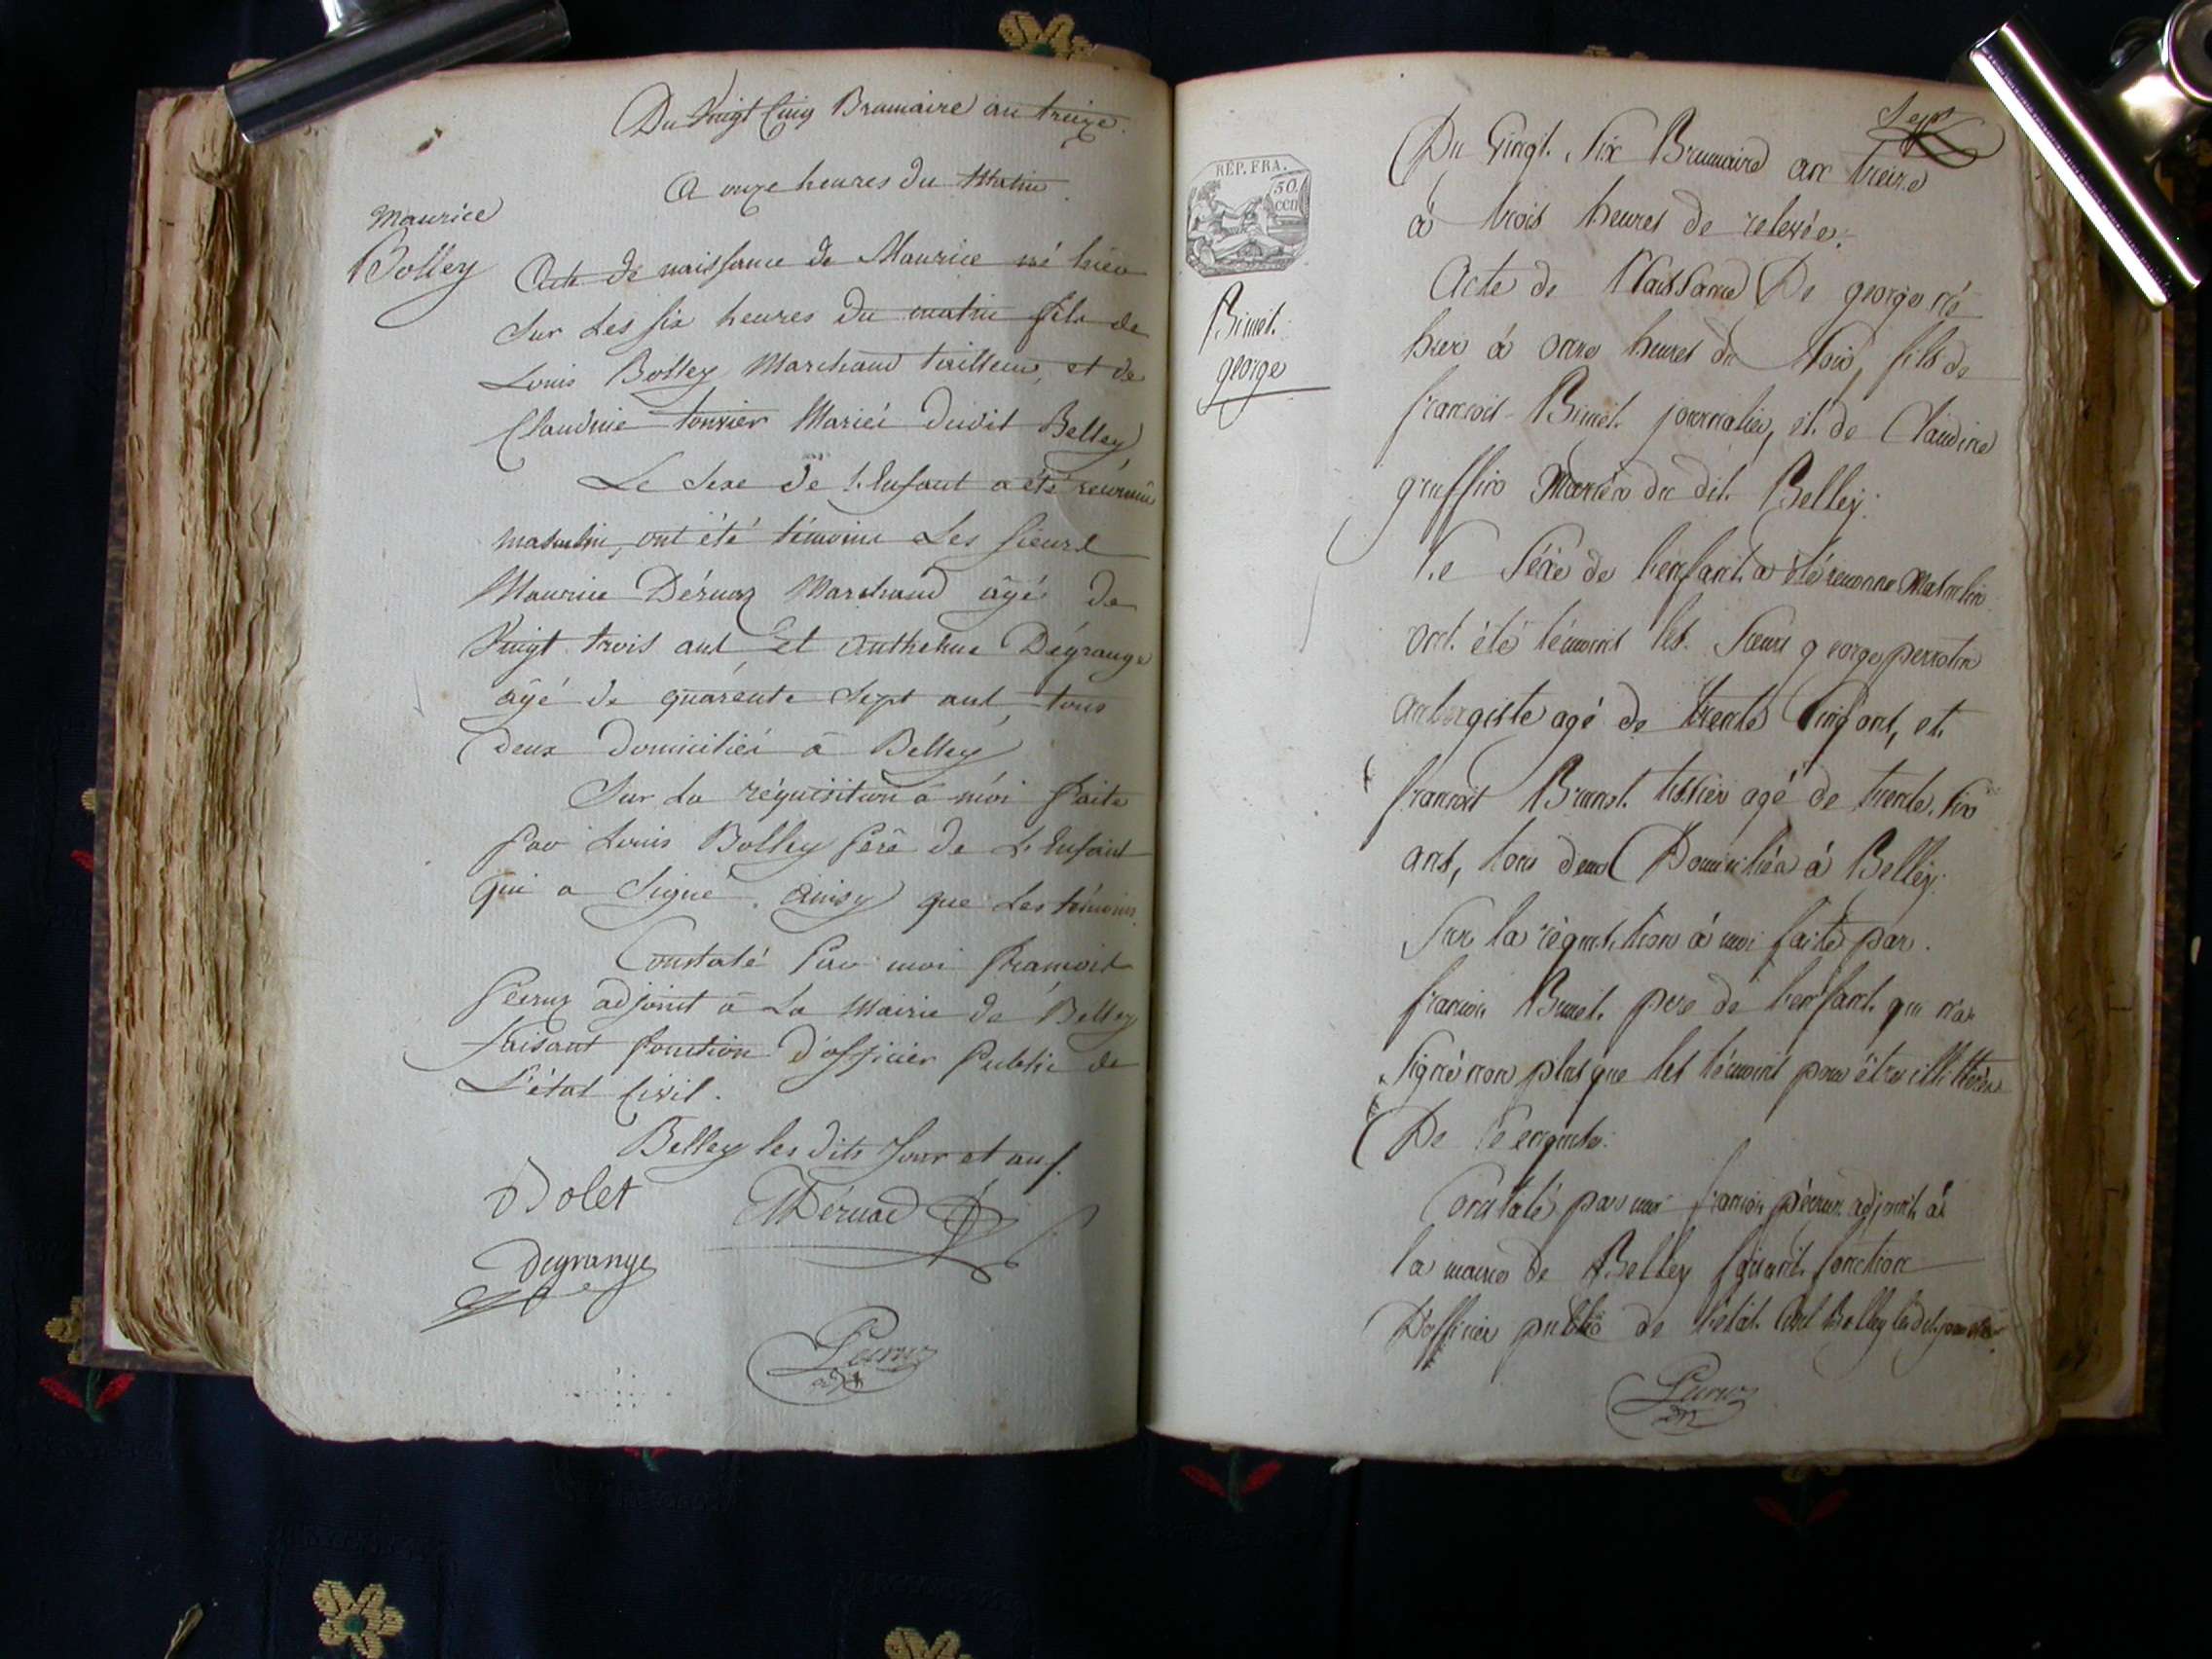 Du Vingt Cinq Brumaire an treize.
A onze heures du Matin
Maurice
Bolley
Acte de naissance de Maurice né hier
Sur Les six heures du matin fils de
Louis Bolley Marchand tailleur, et de
Claudine tonvier Mariés dudit Belley
Le Sexe de l'Enfant a été reconnu
masculin, ont été témoins Les sieurs
Maurice Déruaz Marchand âgé de
Vingt trois ans Et Anthelme Dégrange
âgé de quarente Sept ans, tous
deux domiciliés à Belley
Sur La réquisition à moi faite
par Louis Bolley père de L'Enfant
qui a Signé, Ainsy que Les témoins
Constaté par moi françois
Pécruz adjoint à La Mairie de Belley
faisant fonction d'officier Public de
L'état Civil.
Belley les dits Jour et an.
Bolet
MDéruaz
Degrange
Sept
RÉP. FRA.
50
Du Vingt Six Brumaire an treize
à trois heures de relevée.
Binet
george
Acte de Naissance De george né
hier à onze heures du Soir, fils de
francois Binet journalier, et de Claudine
gruffin Mariés du dit Belley.
Le Séxe de l'enfant a été reconnu Masculin
ont été témoins les Sieurs george perrotin
aubergiste agé de trente Cinq ans, et
francois Brunet tissier agé de trente Six
ans, tous deux Domiciliés à Belley.
Sur la réquisition à moi faite par
francois Binet père de l'enfant qui n'a
Signé non plus que les témoins pour être illitterés
De Ce enquis.
Constaté par moi francois pécruz adjoint à
la mairie de Belley faisant fonction
D'officier public de l'état Civil Belley les dits jour et an